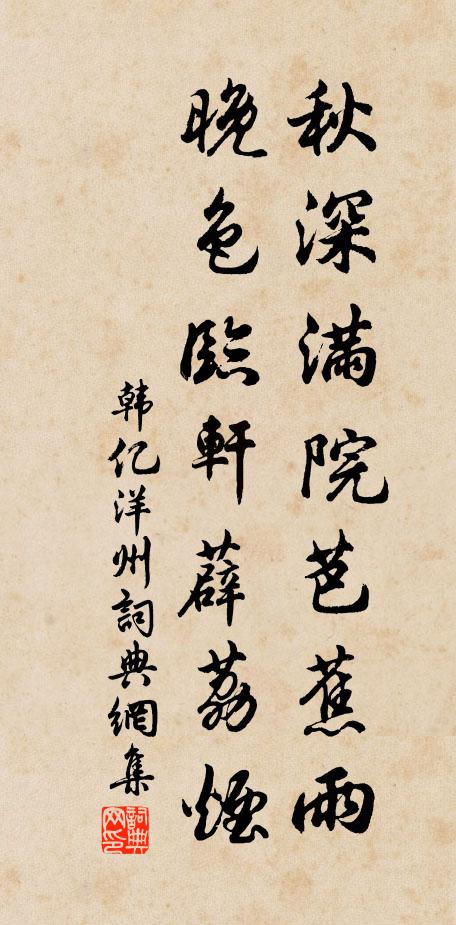 秋深滿院芭蕉雨
晚色臨軒薜荔煙
韩亿洋州詞典網集
詞典网印